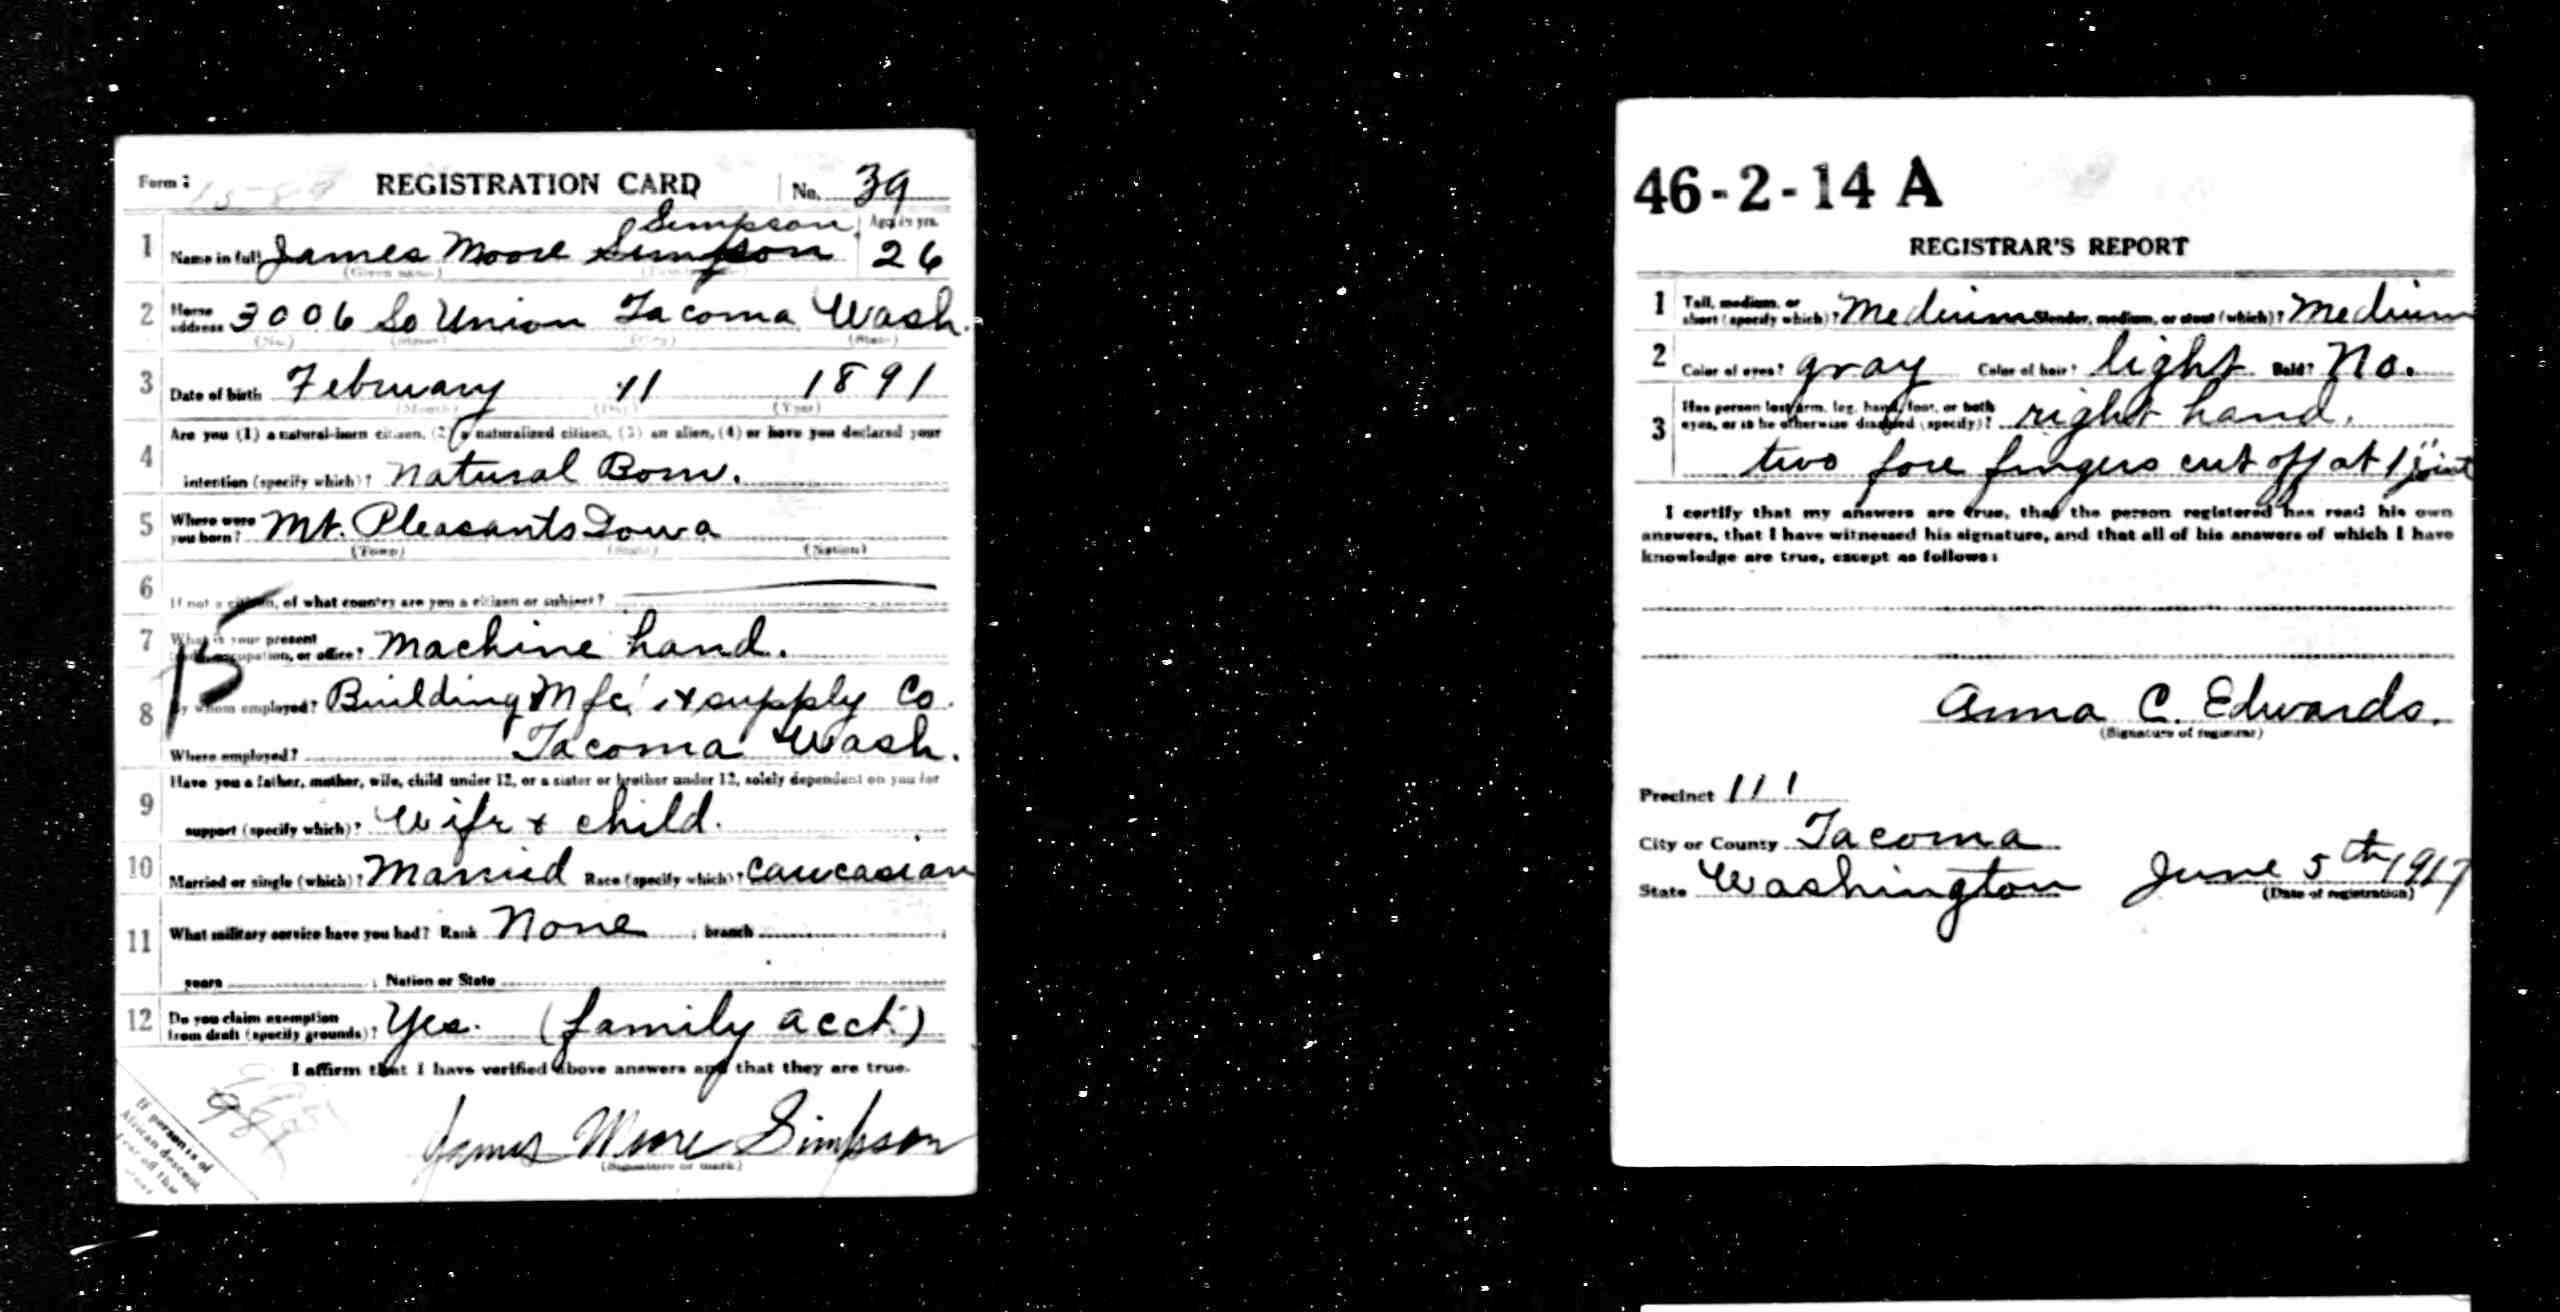 Form 1 REGISTRATION CARD No. 39
Simpson
1 Name in full James Moore Simpson Age, in yrs. 26
(Given name) (Family name)
2 Home address 3006 So Union Tacoma Wash.
(No.) (Street) (City) (State)
3 Date of birth February 11 1891
(Month) (Day) (Year)
4 Are you (1) a natural-born citizen, (2) a naturalized citizen, (3) an alien, (4) or have you declared your
intention (specify which)? Natural Born.
5 Where were you born? Mt. Pleasants Iowa
(Town) (State) (Nation)
6 If not a citizen, of what country are you a citizen or subject?
7 What is your present trade, occupation, or office? Machine hand.
15
8 By whom employed? Building Mfc. & supply Co.
Where employed? Tacoma Wash.
9 Have you a father, mother, wife, child under 12, or a sister or brother under 12, solely dependent on you for
support (specify which)? Wife & child.
10 Married or single (which)? Married Race (specify which)? Caucasian
11 What military service have you had? Rank None ; branch ;
years ; Nation or State
12 Do you claim exemption from draft (specify grounds)? Yes. (family acct.)
I affirm that I have verified above answers and that they are true.
James Moore Simpson
(Signature or mark)
If person is of
African descent,
tear off this
corner
46-2-14 A
REGISTRAR'S REPORT
1 Tall, medium, or short (specify which)? Medium Slender, medium, or stout (which)? Medium
2 Color of eyes? gray Color of hair? light Bald? No.
3 Has person lost arm, leg, hand, foot, or both eyes, or is he otherwise disabled (specify)? right hand.
two fore fingers cut off at 1" joint
I certify that my answers are true, that the person registered has read his own
answers, that I have witnessed his signature, and that all of his answers of which I have
knowledge are true, except as follows:
Anna C. Edwards.
(Signature of registrar)
Precinct 111
City or County Tacoma
State Washington June 5th 1917
(Date of registration)